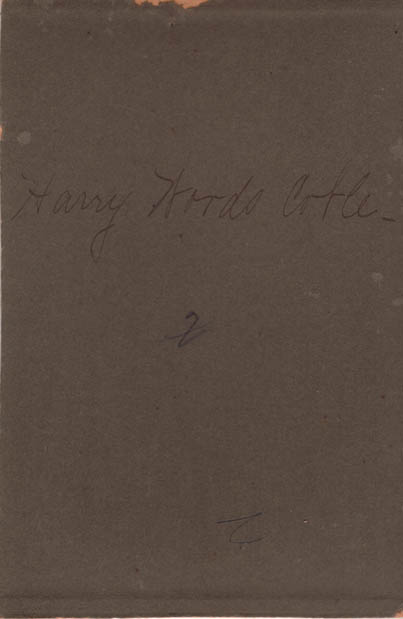 Harry Words Cotle
2